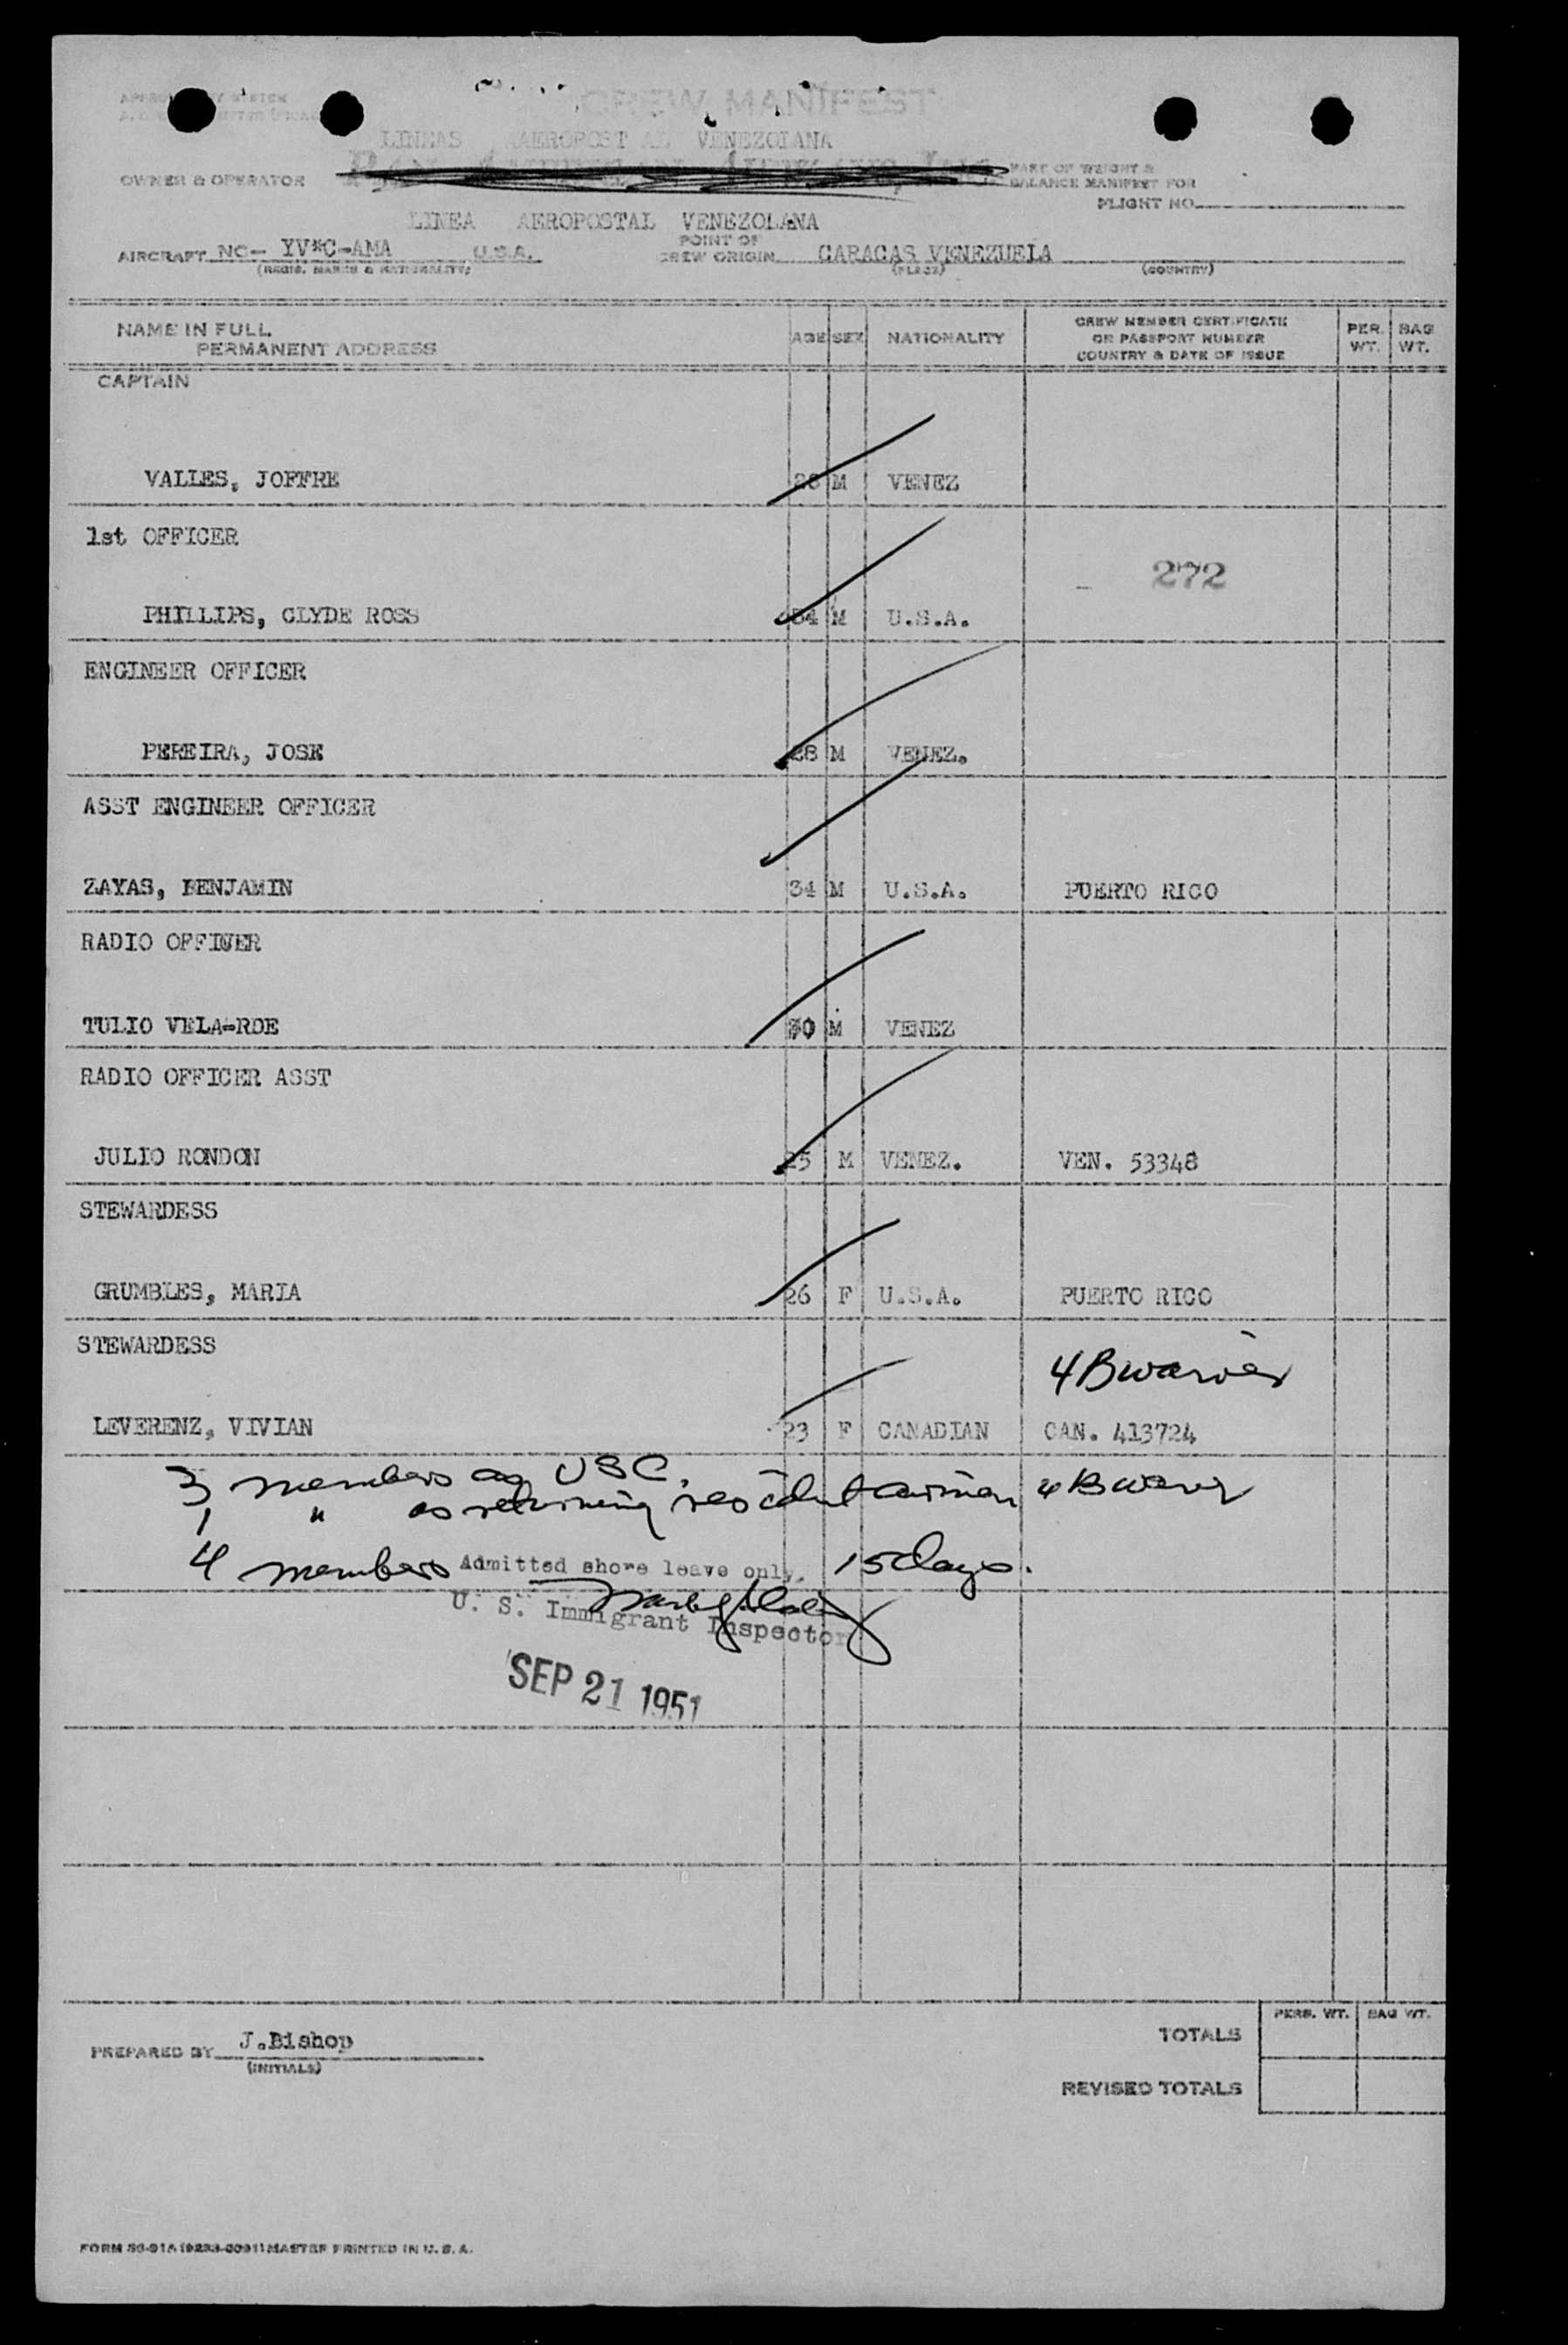 CREW MANIFEST
LINEAS AEROPOSTAL VENEZOLANA
PAN AMERICAN AIRWAYS, INC.
OWNER & OPERATOR
PART OF WEIGHT &
BALANCE MANIFEST FOR
FLIGHT NO.
LINEA AEROPOSTAL VENEZOLANA
AIRCRAFT NC- YV*C-AMA U.S.A. POINT OF CREW ORIGIN CARACAS VENEZUELA
(REGIS. MARKS & NATIONALITY) (PLACE) (COUNTRY)
NAME IN FULL
PERMANENT ADDRESS
AGE SEX NATIONALITY
CREW MEMBER CERTIFICATE
OR PASSPORT NUMBER
COUNTRY & DATE OF ISSUE
PER. WT. BAG WT.
CAPTAIN
VALLES, JOFFRE M VENEZ
1st OFFICER
272
PHILLIPS, CLYDE ROSS 34 M U.S.A.
ENGINEER OFFICER
PEREIRA, JOSE 28 M VENEZ.
ASST ENGINEER OFFICER
ZAYAS, BENJAMIN 34 M U.S.A. PUERTO RICO
RADIO OFFINER
TULIO VELA-RDE 30 M VENEZ
RADIO OFFICER ASST
JULIO RONDON 25 M VENEZ. VEN. 53348
STEWARDESS
GRUMBLES, MARIA 26 F U.S.A. PUERTO RICO
STEWARDESS
4B waiver
LEVERENZ, VIVIAN 23 F CANADIAN CAN. 413724
3 members as USC.
1 " as returning resident airman 4B waiver
4 members Admitted shore leave only. 15 days.
U. S. Immigrant Inspector
SEP 21 1951
PREPARED BY J.Bishop
(INITIALS)
PERS. WT. BAG WT.
TOTALS
REVISED TOTALS
MASTER PRINTED IN U.S.A.